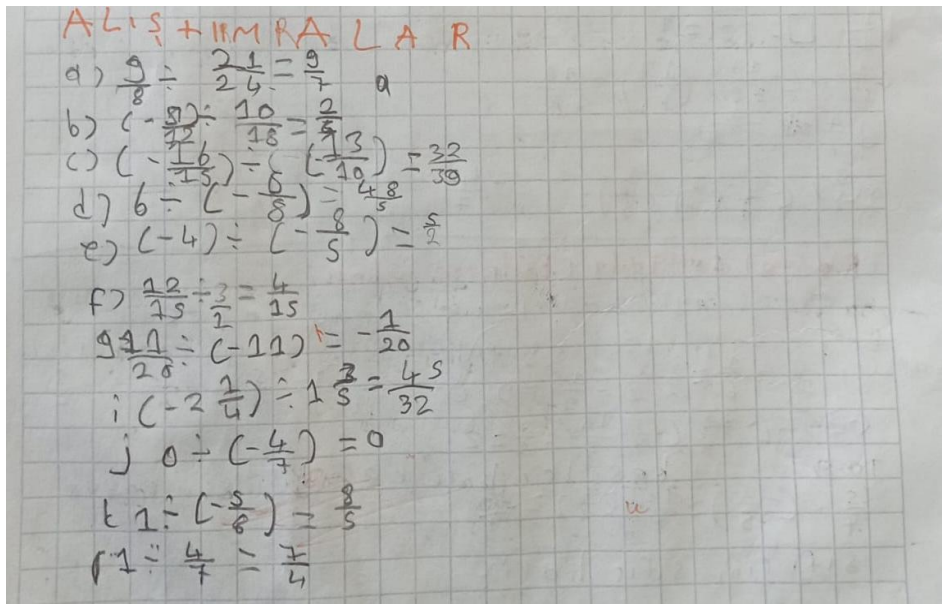 ALIŞTIRMALAR
a) 9/8 ÷ 21/24 = 9/7 a
b) (-8/12) ÷ 10/18 = 2/5
c) (-16/15) ÷ (-13/10) = 32/39
d) 6 ÷ (-6/8) = 48/5
e) (-4) ÷ (-8/5) = 5/2
f) 12/15 ÷ 3/1 = 4/15
g 11/20 ÷ (-11) = -1/20
i (-2 1/4) ÷ 1 3/5 = 45/32
j 0 ÷ (-4/7) = 0
k 1 ÷ (-5/8) = 8/5
r 1 ÷ 4/7 = 7/4